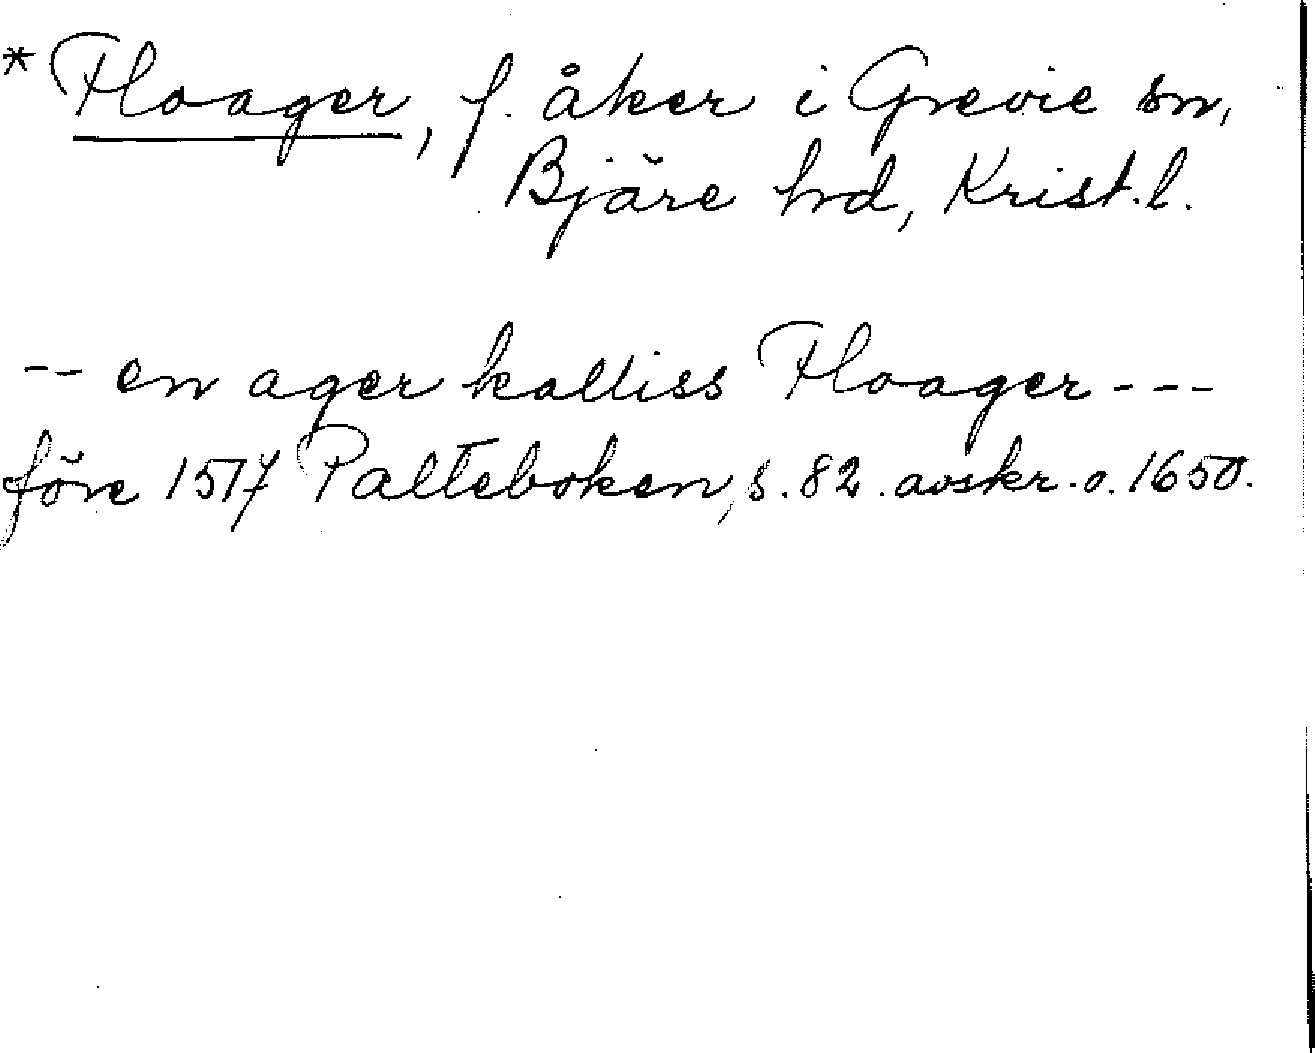 * Floager, f. åker i Grevie sn,
Bjäre hd, Krist. l.
-- en ager kalliss Floager ---
före 1517 Palteboken, s. 82. avskr. o. 1650.